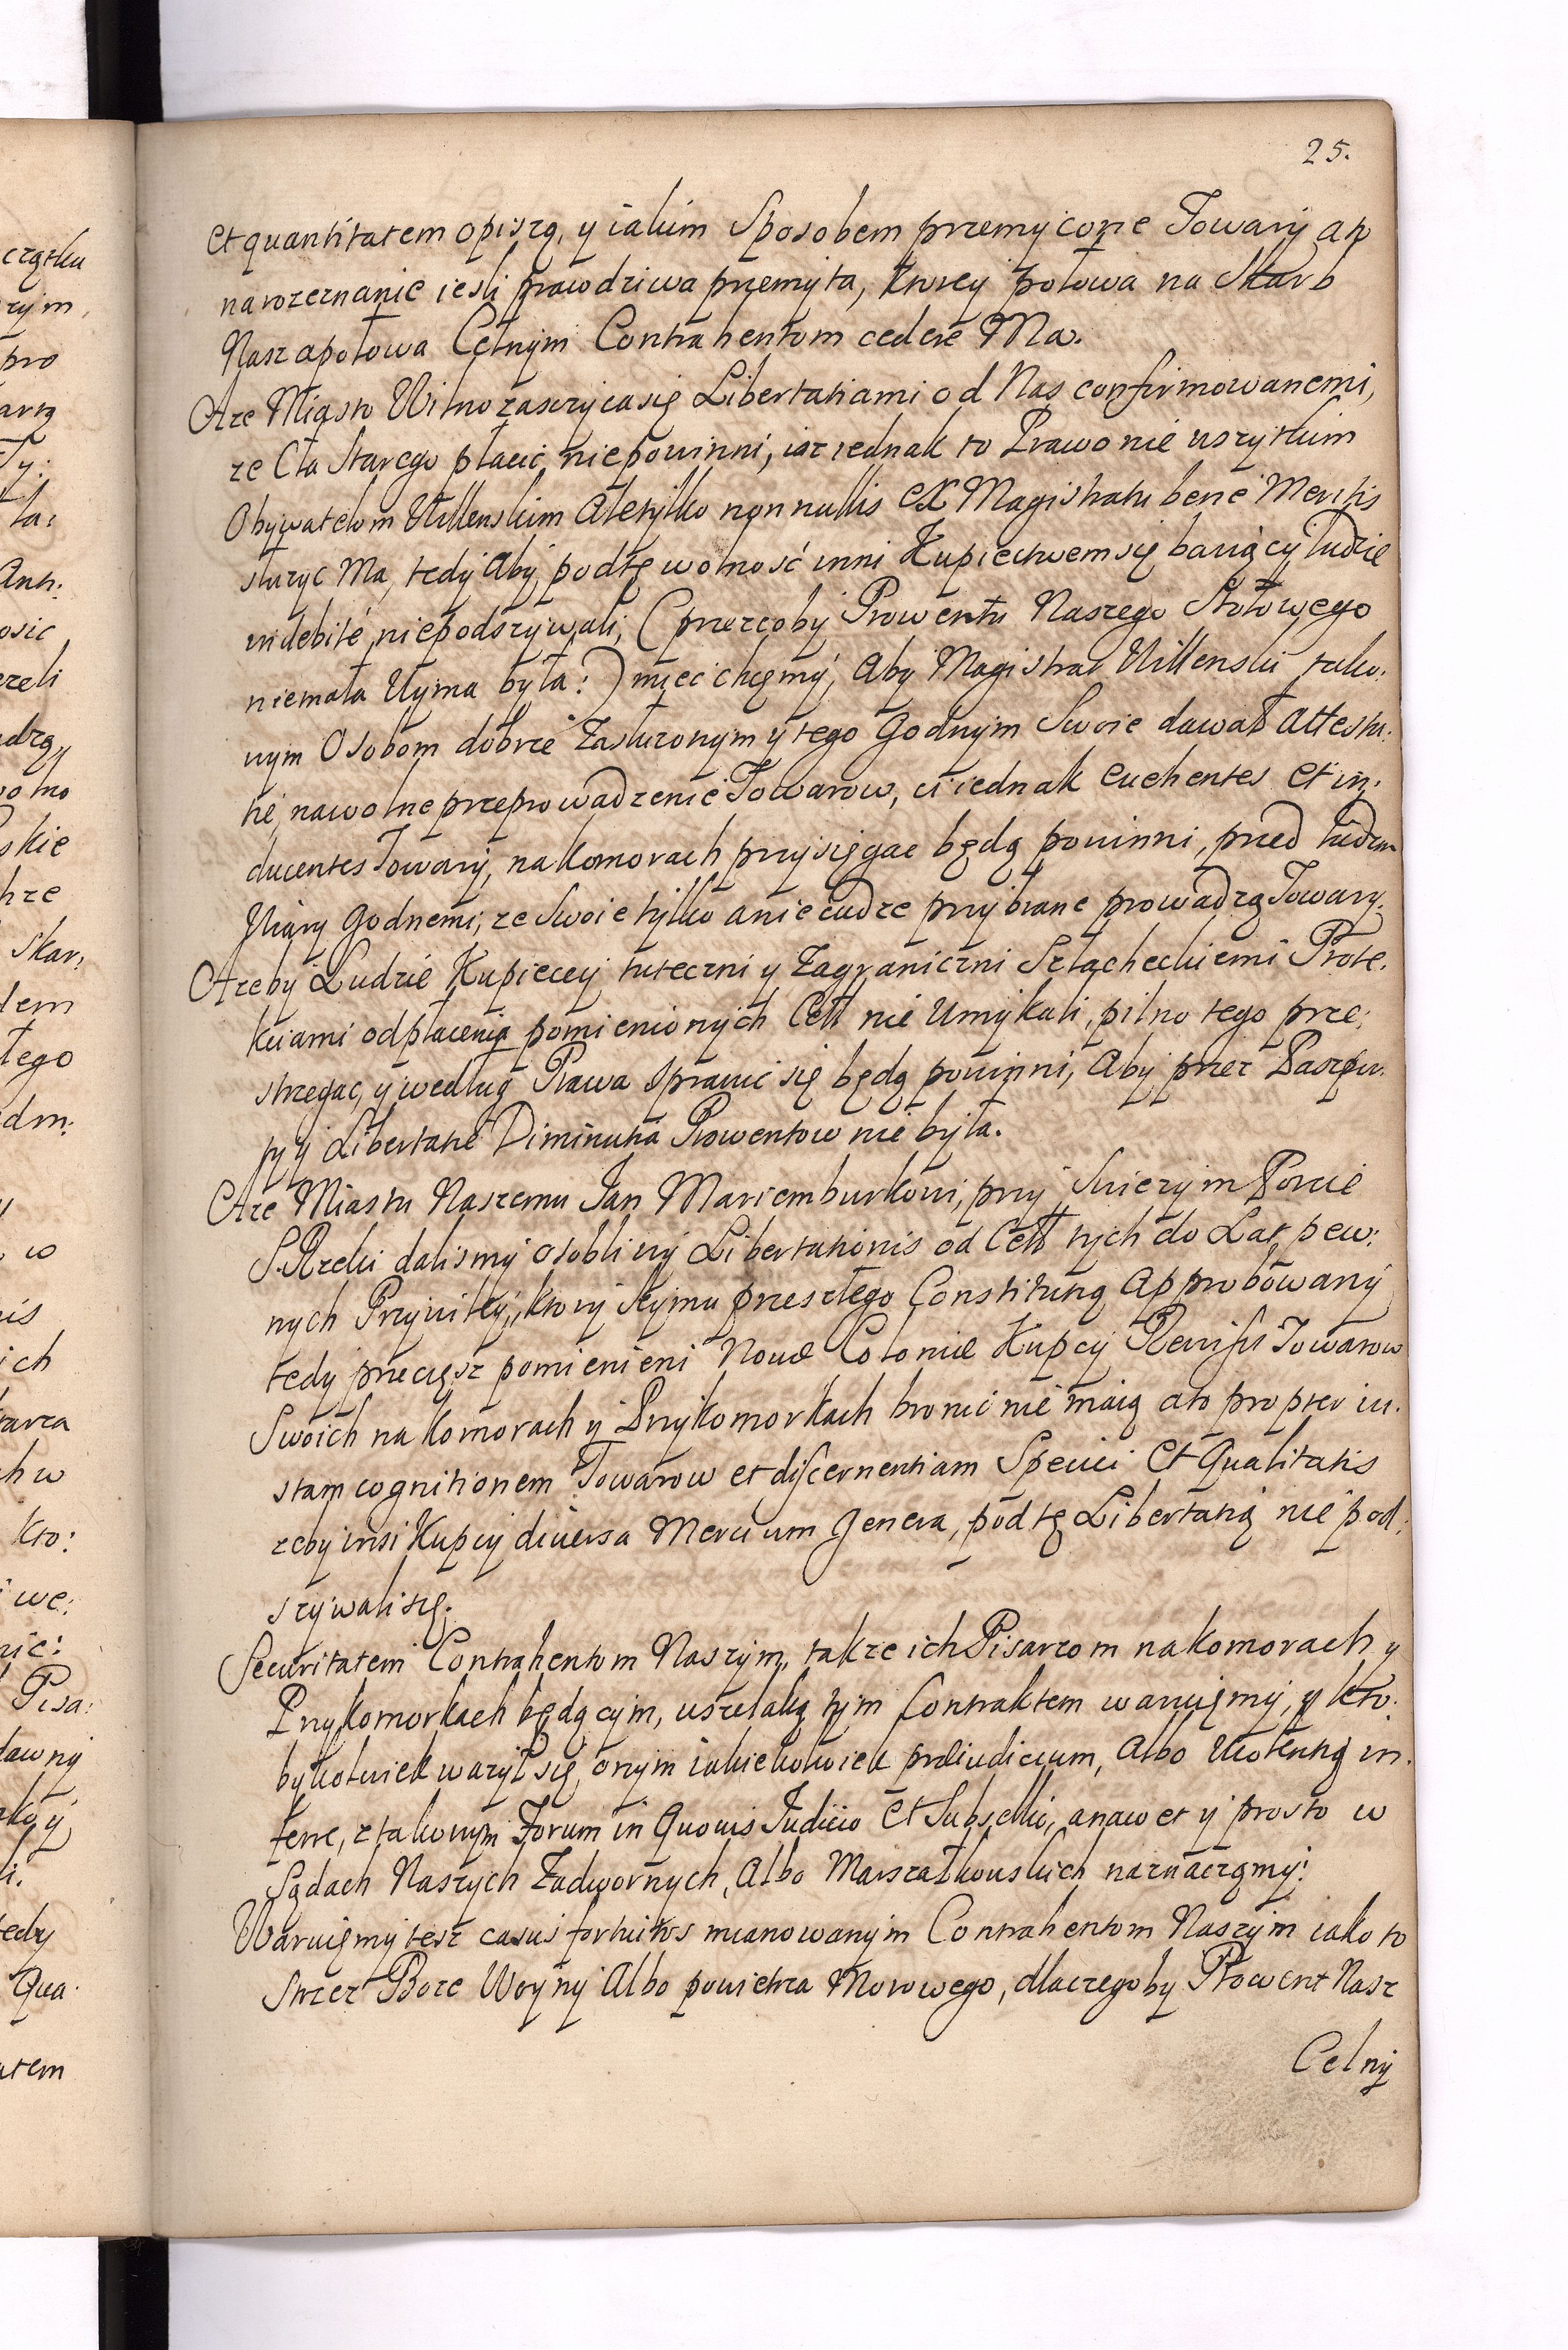 25.
et quantitatem opiszą, y iakim Sposobem przemycone Towary a to
na rozeznanie iesli prawdziwa przemyta, ktorey połowa na Skarb
Nasz a połowa Celnym Contrahentom cedere Ma.
A ze Miasto Wilno zasczyca się Libertatiami od Nas confirmowanemi,
ze Cła Starego płacic niepowinni, iaz iednak to Prawo nie wszytkim
Obywatelom Willenskim Ale tylko nonnullis ex Magistratu bene Meritis
słuzyc Ma, tedy Aby pod tę wolność inni Kupiectwem się bawiący ludzie
indebite niepodszywali, (przezco by Prowentu Naszego Stołowego
niemała Uyma była:) miec chcemy, Aby Magistrat Willenski tako:
wym Osobom dobrze Zasłuzonym y tego Godnym Swoie dawał Attesta:
tie, na wolne przeprowadzenie Towarow, ci iednak euehentes et in:
ducentes Towary, na komorach przysięgac będą powinni, przed ludzmi
Wiary Godnemi, ze Swoie tylko a nie cudze przybrane prowadzą Towary.
A zeby Ludzie Kupieccy tuteczni y Zagraniczni Szlacheckiemi Prote:
kciami od płacenia pomienionych Cełł nie Umykali, pilno tego prze:
strzegac, y według Prawa Sprawic się będą powinni, Aby przez Paszpor:
ty y Libertatie Diminutia Prowentow nie była.
A ze Miastu Naszemu Jan Mariemburkowi, przy Swiezym Porcie
S. Rzeki dalismy osobliwy Libertationis od Cełł tych do Lat pew:
nych Przywiley, ktory Seymu przeszłego Constitutią Approbowany
tedy przeciesz pomienieni Nowe Colonie Kupcy Rewisij Towarow
Swoich na komorach y Przykomorkach bronic nie maią a to propter iu:
stam cognitionem Towarow et discernentiam Speciei et Qualitatis
zeby insi Kupcy diuersa Mercium Genera, pod tę Libertatią nie pod:
szywali się.
Securitatem Contrahentom Naszym, takze ich Pisarzom na komorach y
Przykomorkach będącym, wszelaką tym Contraktem waruiemy, y kto:
bykolwiek wazył się onym iakiekolwiek præiudicium, Albo Uiolentią in:
ferre, z takowym Forum in Quouis Iudicio et Subsellio, a nawet y prosto w
Sądach Naszych Zadwornych, Albo Marszałkowskich naznaczamy:
Waruiemy tesz casus fortuitos mianowanym Contrahentom Naszym iako to
Strzez Boze Woyny Albo powietrza Morowego, dla czego by Prowent Nasz
Celny